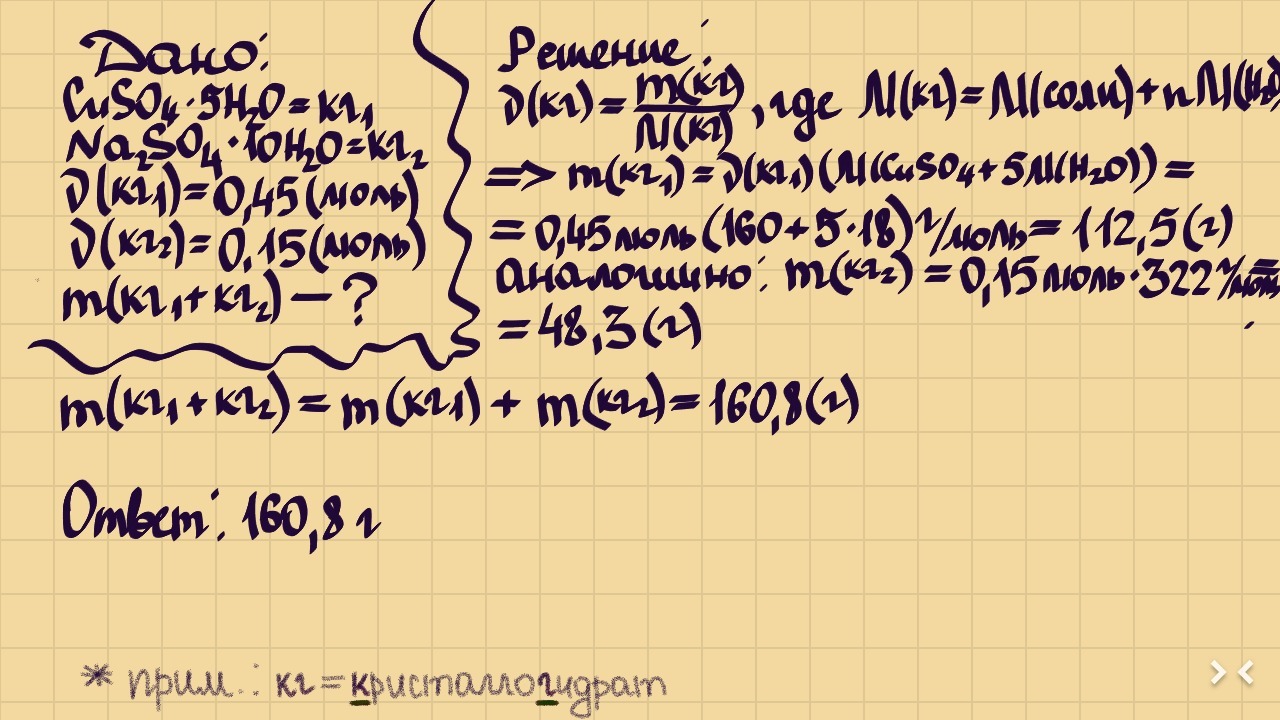 Дано:
CuSO₄·5H₂O = кг₁
Na₂SO₄·10H₂O = кг₂
ν(кг₁) = 0,45 (моль)
ν(кг₂) = 0,15 (моль)
m(кг₁ + кг₂) — ?
Решение:
ν(кг) = m(кг)/M(кг), где M(кг) = M(соли) + nM(H₂O)
=> m(кг₁) = ν(кг₁)(M(CuSO₄ + 5M(H₂O)) =
= 0,45 моль (160 + 5·18) г/моль = 112,5 (г)
аналогично: m(кг₂) = 0,15 моль · 322 г/моль =
= 48,3 (г)
m(кг₁ + кг₂) = m(кг₁) + m(кг₂) = 160,8 (г)
Ответ: 160,8 г
* прим.: кг = кристаллогидрат